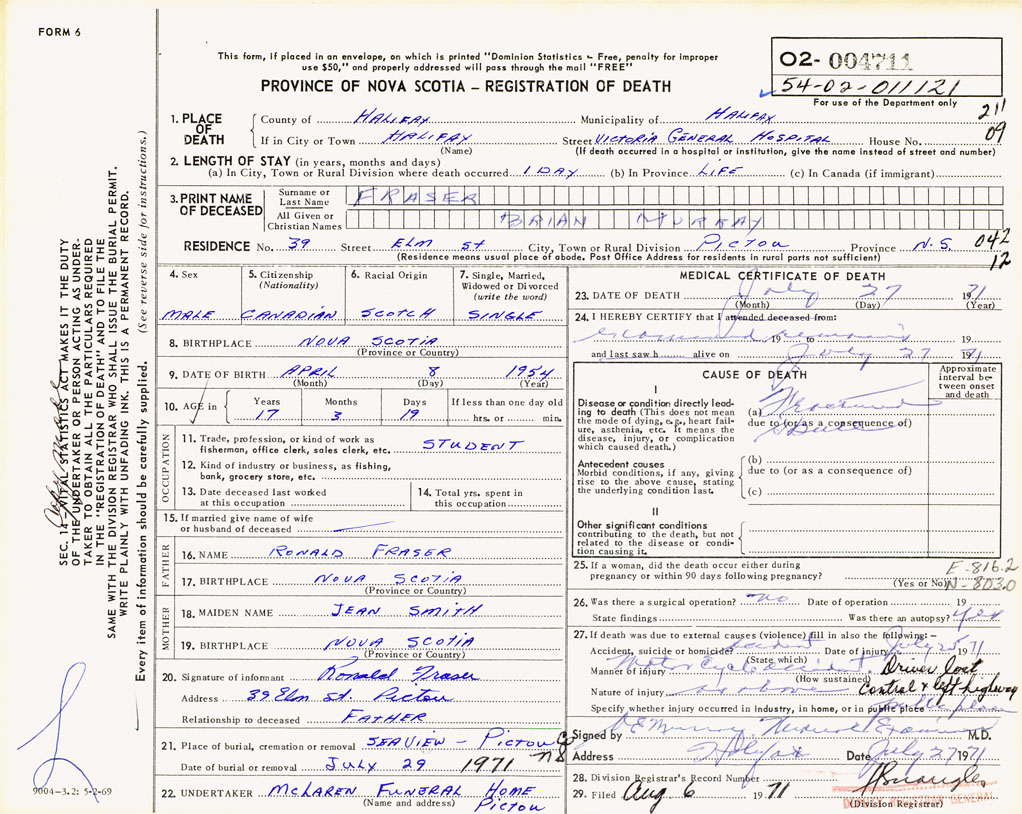 FORM 6
This form, if placed in an envelope, on which is printed "Dominion Statistics – Free, penalty for improper
use $50," and properly addressed will pass through the mail "FREE"
PROVINCE OF NOVA SCOTIA – REGISTRATION OF DEATH
02- 004711
54-02-011121
For use of the Department only
211
09
1. PLACE OF DEATH
County of HALIFAX Municipality of HALIFAX
If in City or Town HALIFAX Street VICTORIA GENERAL HOSPITAL House No.
(Name) (If death occurred in a hospital or institution, give the name instead of street and number)
2. LENGTH OF STAY (in years, months and days)
(a) In City, Town or Rural Division where death occurred 1 DAY (b) In Province LIFE (c) In Canada (if immigrant)
3. PRINT NAME OF DECEASED
Surname or Last Name FRASER
All Given or Christian Names BRIAN MURRAY
RESIDENCE No. 39 Street ELM ST City, Town or Rural Division PICTOU Province N.S. 042
(Residence means usual place of abode. Post Office Address for residents in rural parts not sufficient) 12
4. Sex
MALE
5. Citizenship
(Nationality)
CANADIAN
6. Racial Origin
SCOTCH
7. Single, Married,
Widowed or Divorced
(write the word)
SINGLE
8. BIRTHPLACE NOVA SCOTIA
(Province or Country)
9. DATE OF BIRTH APRIL 8 1954
(Month) (Day) (Year)
10. AGE in
Years Months Days If less than one day old
17 3 19 hrs. or min.
OCCUPATION
11. Trade, profession, or kind of work as
fisherman, office clerk, sales clerk, etc. STUDENT
12. Kind of industry or business, as fishing,
bank, grocery store, etc.
13. Date deceased last worked
at this occupation
14. Total yrs. spent in
this occupation
15. If married give name of wife
or husband of deceased
FATHER
16. NAME RONALD FRASER
17. BIRTHPLACE NOVA SCOTIA
(Province or Country)
MOTHER
18. MAIDEN NAME JEAN SMITH
19. BIRTHPLACE NOVA SCOTIA
(Province or Country)
20. Signature of informant Ronald Fraser
Address 39 Elm St. Pictou
Relationship to deceased FATHER
21. Place of burial, cremation or removal SEAVIEW – PICTOU
NS
Date of burial or removal JULY 29 1971
22. UNDERTAKER McLAREN FUNERAL HOME
(Name and address) PICTOU
MEDICAL CERTIFICATE OF DEATH
23. DATE OF DEATH July 27 1971
(Month) (Day) (Year)
24. I HEREBY CERTIFY that I attended deceased from:
Examined remains 19 to 19
and last saw h alive on July 27 1971
CAUSE OF DEATH
Approximate
interval be-
tween onset
and death
I
Disease or condition directly lead-
ing to death (This does not mean
the mode of dying, e.g., heart fail-
ure, asthenia, etc. It means the
disease, injury, or complication
which caused death.)
(a) Fractured
due to (or as a consequence of)
Skull
Antecedent causes
Morbid conditions, if any, giving
rise to the above cause, stating
the underlying condition last.
(b)
due to (or as a consequence of)
(c)
II
Other significant conditions
contributing to the death, but not
related to the disease or condi-
tion causing it.
25. If a woman, did the death occur either during
pregnancy or within 90 days following pregnancy?
(Yes or No)
E-816.2
N-803.0
26. Was there a surgical operation? no Date of operation 19
State findings Was there an autopsy? yes
27. If death was due to external causes (violence) fill in also the following: –
Accident, suicide or homicide? Accident Date of injury July 25 1971
(State which)
Manner of injury Motor Cycle accident Driver lost
(How sustained)
Nature of injury as above Control & left highway
Specify whether injury occurred in industry, in home, or in public place Public place
Signed by D E Murray Medical Examiner M.D.
Address Halifax Date July 27 1971
28. Division Registrar's Record Number
29. Filed Aug 6 1971
(Division Registrar)
DEPUTY REGISTRAR GENERAL
SEC. 14–VITAL STATISTICS ACT MAKES IT THE DUTY
OF THE UNDERTAKER OR PERSON ACTING AS UNDER-
TAKER TO OBTAIN ALL THE PARTICULARS REQUIRED
IN THE "REGISTRATION OF DEATH" AND TO FILE THE
SAME WITH THE DIVISION REGISTRAR WHO SHALL ISSUE THE BURIAL PERMIT.
WRITE PLAINLY WITH UNFADING INK. THIS IS A PERMANENT RECORD.
Every item of information should be carefully supplied. (See reverse side for instructions.)
9004-3.2: 5-2-69